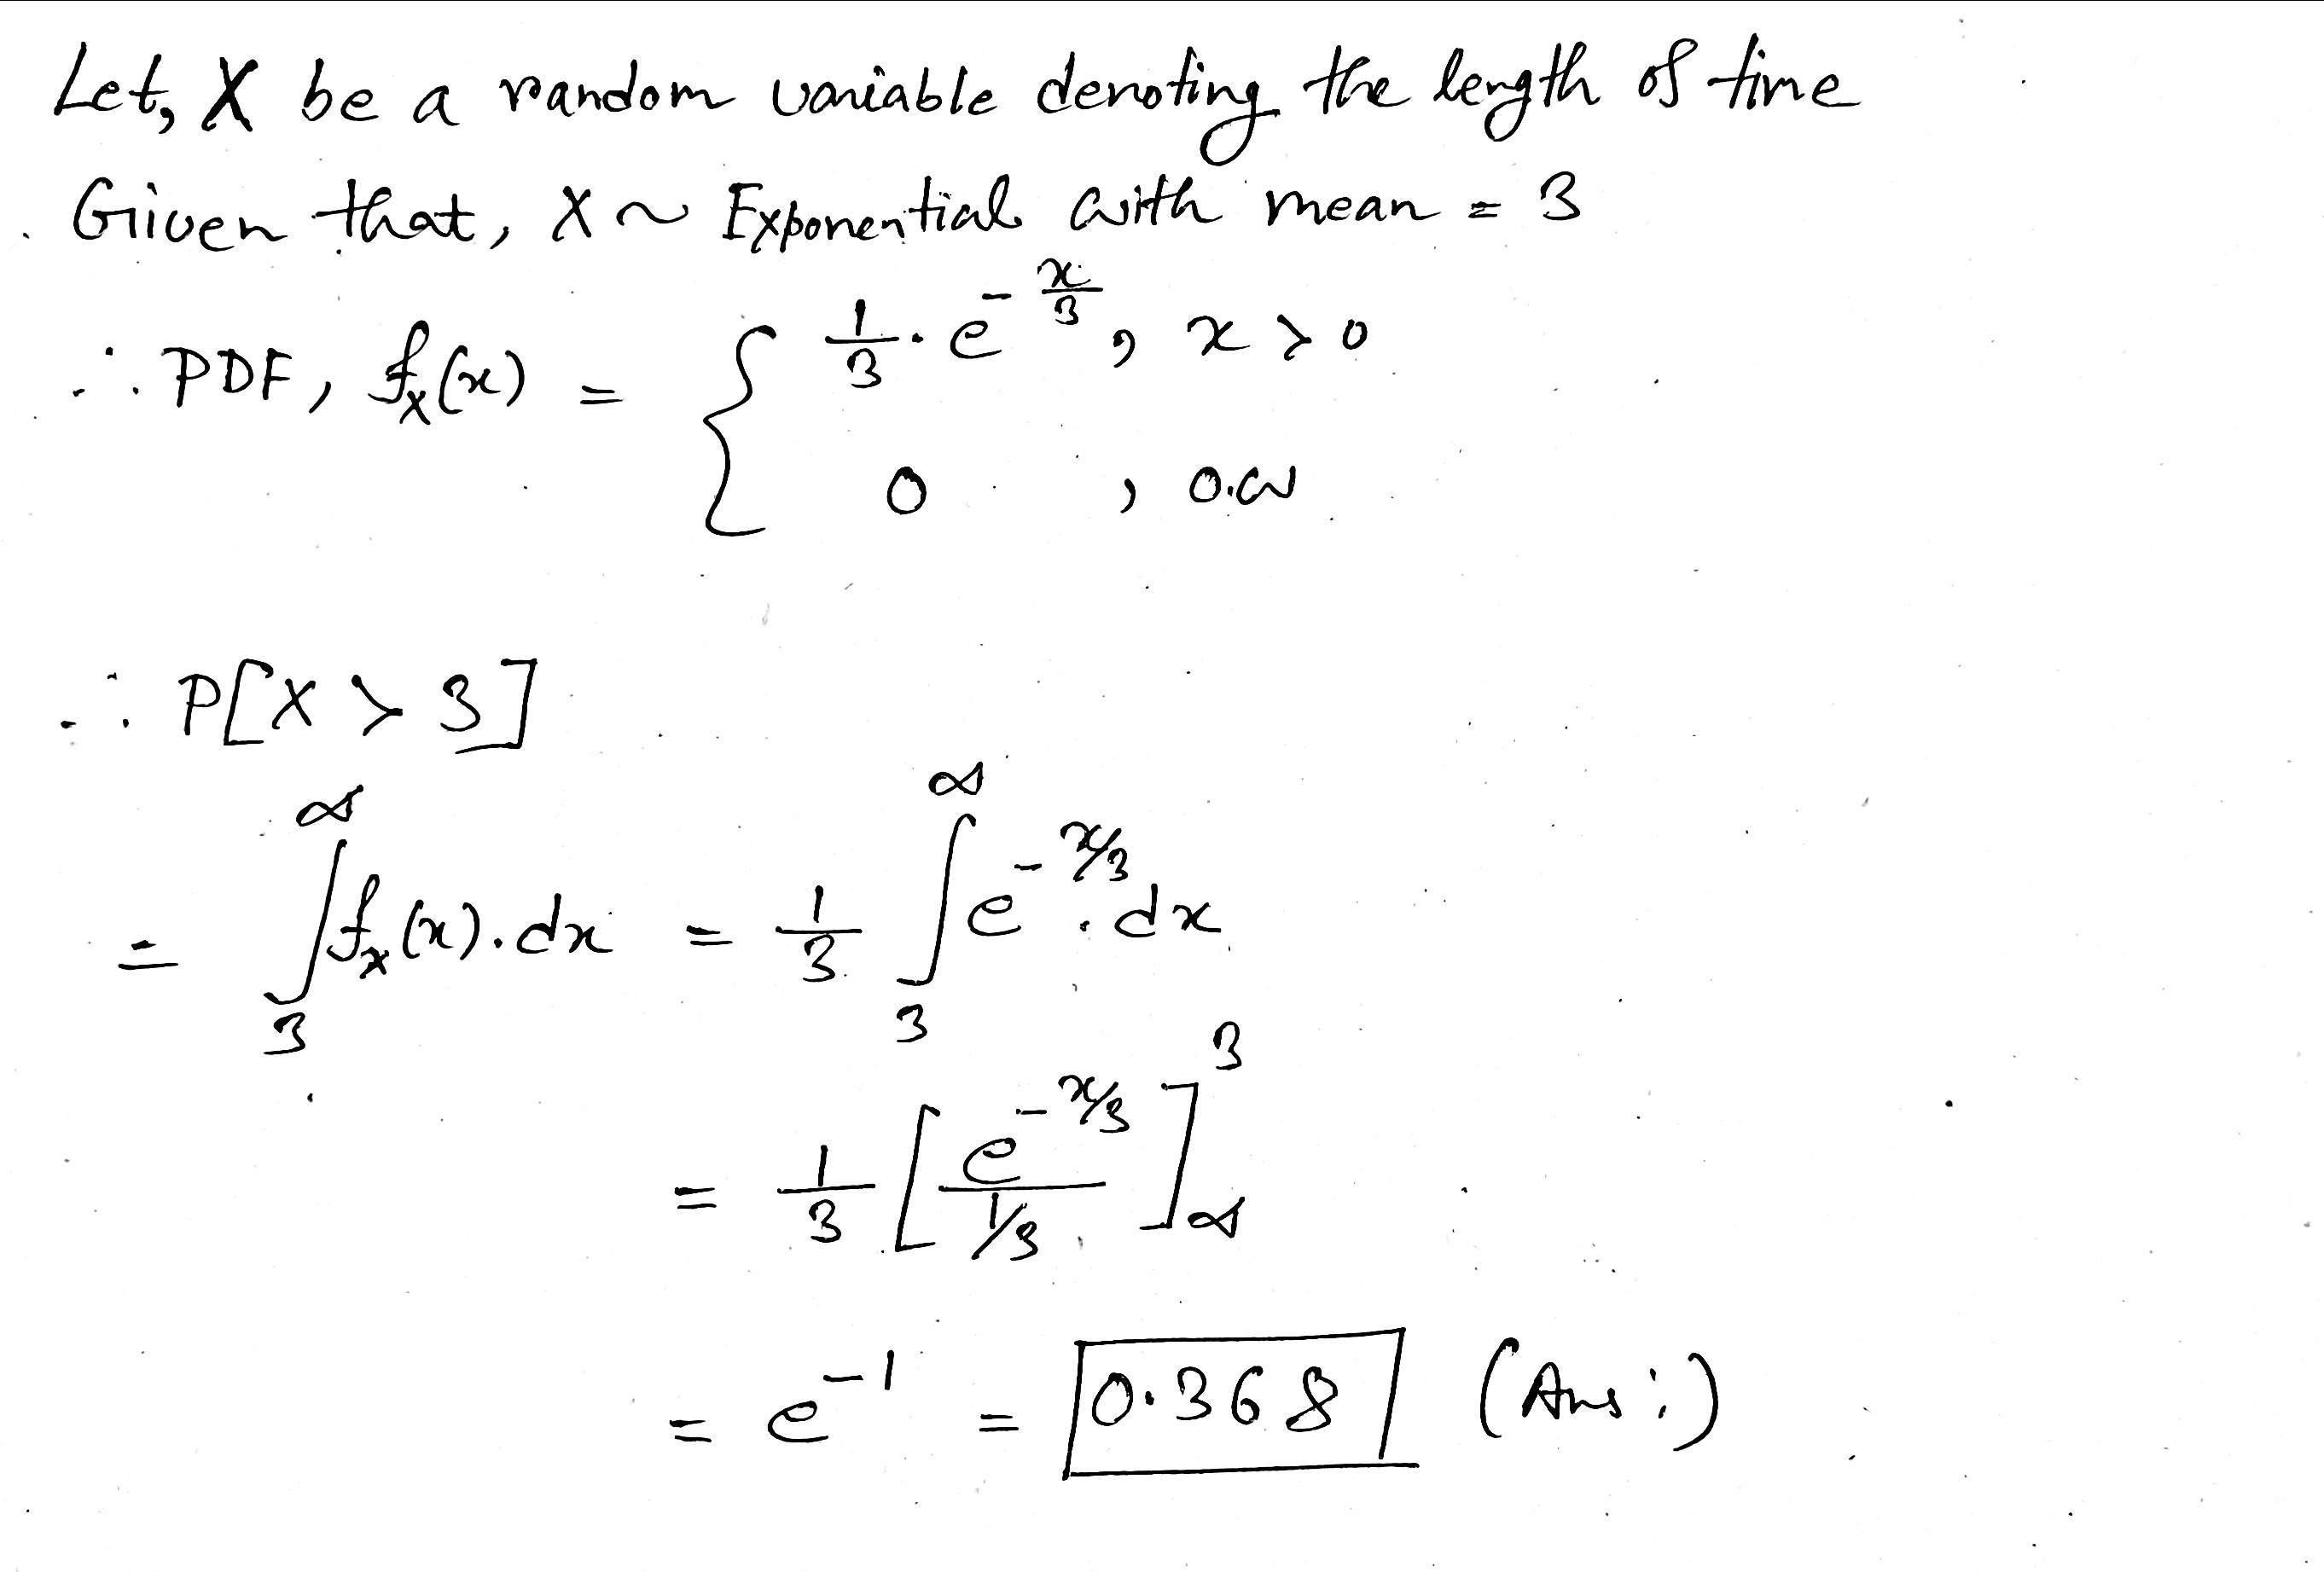 Let, X be a random variable denoting the length of time
Given that, X ~ Exponential with mean = 3
∴ PDF, f_X(x) = { 1/3 · e^(-x/3) , x > 0
0 , o.w
∴ P[X > 3]
= ∫_3^∞ f_X(x) . dx = 1/3 ∫_3^∞ e^(-x/3) . dx
= 1/3 [ e^(-x/3) / (1/3) ]_∞^3
= e^(-1) = 0.368 (Ans:)